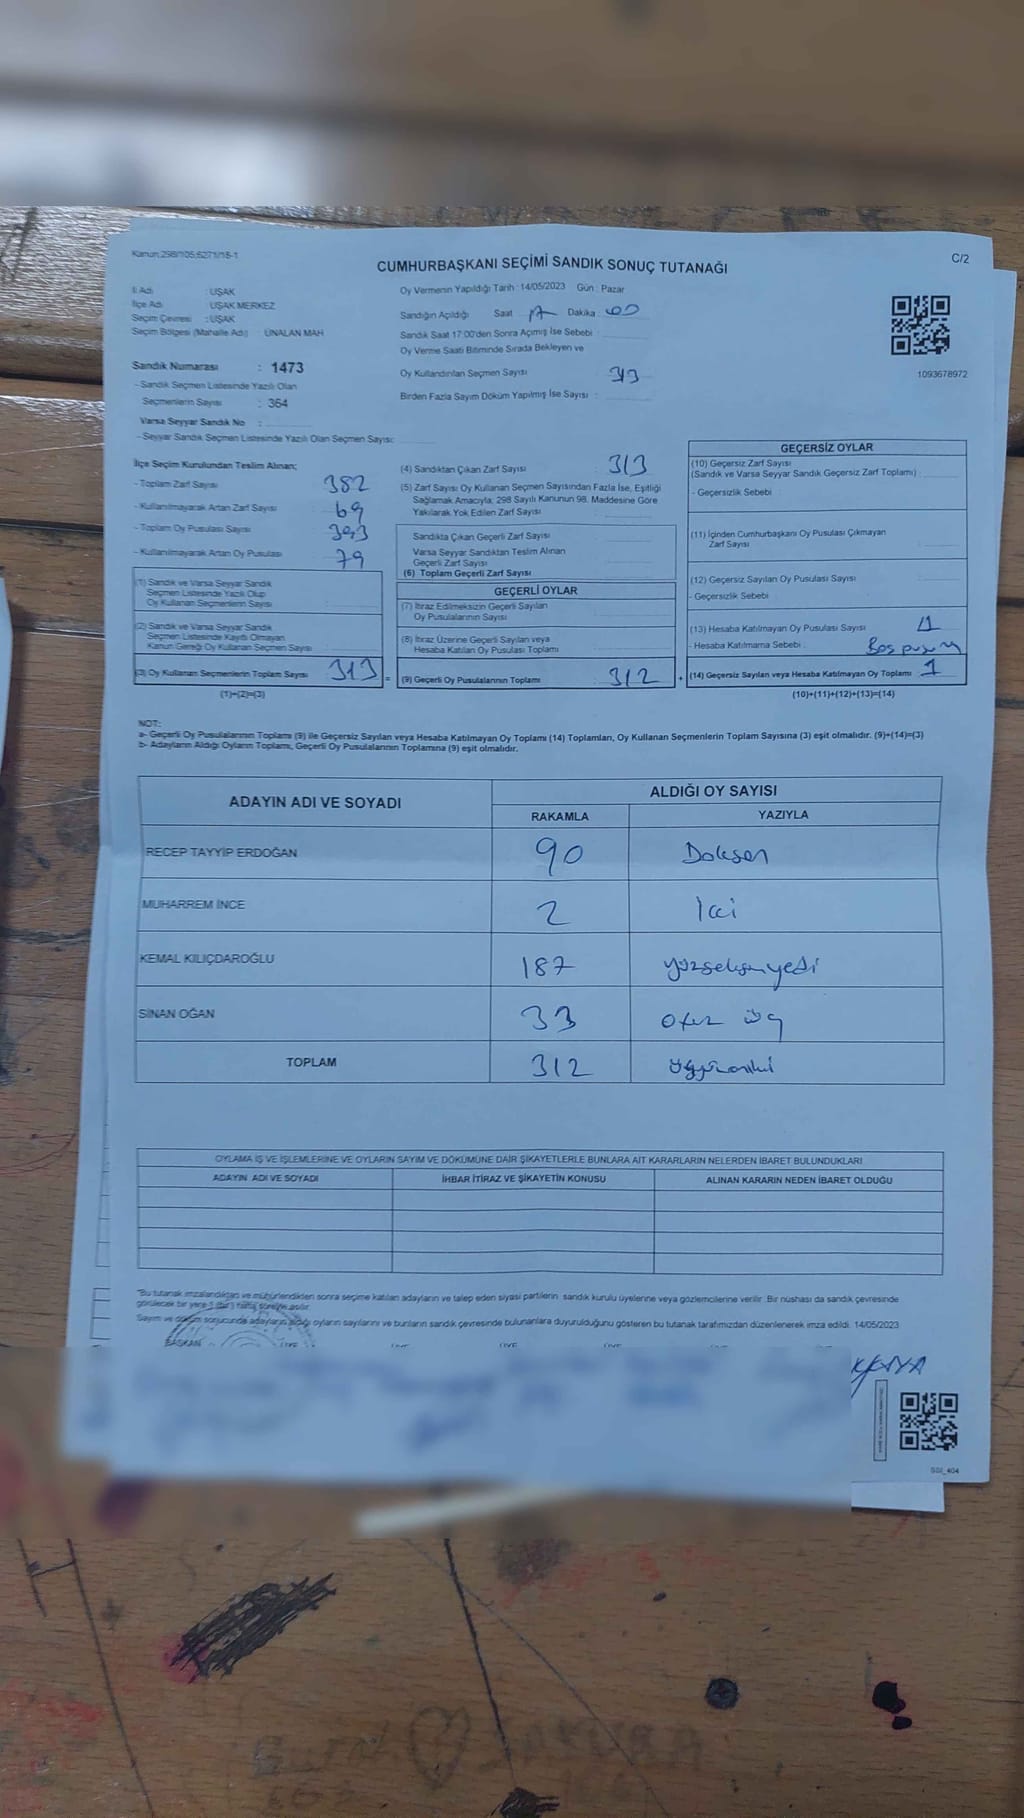 Kanun:298/105;6271/18-1
C/2
CUMHURBAŞKANI SEÇİMİ SANDIK SONUÇ TUTANAĞI
İl Adı : UŞAK
İlçe Adı : UŞAK MERKEZ
Seçim Çevresi : UŞAK
Seçim Bölgesi (Mahalle Adı) : ÜNALAN MAH
Sandık Numarası : 1473
- Sandık Seçmen Listesinde Yazılı Olan
Seçmenlerin Sayısı : 364
Varsa Seyyar Sandık No :
- Seyyar Sandık Seçmen Listesinde Yazılı Olan Seçmen Sayısı:
Oy Vermenin Yapıldığı Tarih : 14/05/2023 Gün : Pazar
Sandığın Açıldığı Saat 17 Dakika : 00
Sandık Saat 17:00'den Sonra Açımış İse Sebebi :
Oy Verme Saati Bitiminde Sırada Bekleyen ve
Oy Kullandırılan Seçmen Sayısı 313
Birden Fazla Sayım Döküm Yapılmış İse Sayısı :
1093678972
İlçe Seçim Kurulundan Teslim Alınan;
- Toplam Zarf Sayısı 382
- Kullanılmayarak Artan Zarf Sayısı 69
- Toplam Oy Pusulası Sayısı
- Kullanılmayarak Artan Oy Pusulası 79
(1) Sandık ve Varsa Seyyar Sandık
Seçmen Listesinde Yazılı Olup
Oy Kullanan Seçmenlerin Sayısı
(2) Sandık ve Varsa Seyyar Sandık
Seçmen Listesinde Kayıtlı Olmayan
Kanun Gereği Oy Kullanan Seçmen Sayısı
(3) Oy Kullanan Seçmenlerin Toplam Sayısı 313 =
(1)+(2)=(3)
(4) Sandıktan Çıkan Zarf Sayısı : 313
(5) Zarf Sayısı Oy Kullanan Seçmen Sayısından Fazla İse, Eşitliği
Sağlamak Amacıyla; 298 Sayılı Kanunun 98. Maddesine Göre
Yakılarak Yok Edilen Zarf Sayısı :
Sandıkta Çıkan Geçerli Zarf Sayısı
Varsa Seyyar Sandıktan Teslim Alınan
Geçerli Zarf Sayısı
(6) Toplam Geçerli Zarf Sayısı
GEÇERLİ OYLAR
(7) İtiraz Edilmeksizin Geçerli Sayılan
Oy Pusulalarının Sayısı
(8) İtiraz Üzerine Geçerli Sayılan veya
Hesaba Katılan Oy Pusulası Toplamı
(9) Geçerli Oy Pusulalarının Toplamı : 312 +
GEÇERSİZ OYLAR
(10) Geçersiz Zarf Sayısı
(Sandık ve Varsa Seyyar Sandık Geçersiz Zarf Toplamı) :
- Geçersizlik Sebebi :
(11) İçinden Cumhurbaşkanı Oy Pusulası Çıkmayan
Zarf Sayısı
(12) Geçersiz Sayılan Oy Pusulası Sayısı
- Geçersizlik Sebebi :
(13) Hesaba Katılmayan Oy Pusulası Sayısı 1
- Hesaba Katılmama Sebebi : Boş
(14) Geçersiz Sayılan veya Hesaba Katılmayan Oy Toplamı : 1
(10)+(11)+(12)+(13)=(14)
NOT:
a- Geçerli Oy Pusulalarının Toplamı (9) ile Geçersiz Sayılan veya Hesaba Katılmayan Oy Toplamı (14) Toplamları, Oy Kullanan Seçmenlerin Toplam Sayısına (3) eşit olmalıdır. (9)+(14)=(3)
b- Adayların Aldığı Oyların Toplamı, Geçerli Oy Pusulalarının Toplamına (9) eşit olmalıdır.
ADAYIN ADI VE SOYADI
ALDIĞI OY SAYISI
RAKAMLA YAZIYLA
RECEP TAYYİP ERDOĞAN 90 Doksan
MUHARREM İNCE 2 İki
KEMAL KILIÇDAROĞLU 187 yüzseksenyedi
SİNAN OĞAN 33 Otuz üç
TOPLAM 312 üçyüzoniki
OYLAMA İŞ VE İŞLEMLERİNE VE OYLARIN SAYIM VE DÖKÜMÜNE DAİR ŞİKAYETLERLE BUNLARA AİT KARARLARIN NELERDEN İBARET BULUNDUKLARI
ADAYIN ADI VE SOYADI İHBAR İTİRAZ VE ŞİKAYETİN KONUSU ALINAN KARARIN NEDEN İBARET OLDUĞU
"Bu tutanak imzalandıktan ve mühürlendikten sonra seçime katılan adayların ve talep eden siyasi partilerin sandık kurulu üyelerine veya gözlemcilerine verilir. Bir nüshası da sandık çevresinde
görülecek bir yere 1 (bir) hafta süreyle asılır.
Sayım ve döküm sonucunda adayların aldığı oyların sayılarını ve bunların sandık çevresinde bulunanlara duyurulduğunu gösteren bu tutanak tarafımızdan düzenlenerek imza edildi. 14/05/2023
BAŞKAN ÜYE ÜYE ÜYE ÜYE
KAYA